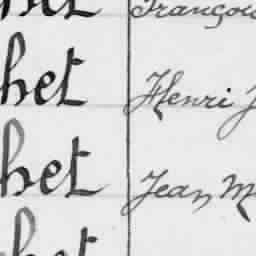 het François
het Henri J
het Jean M
het